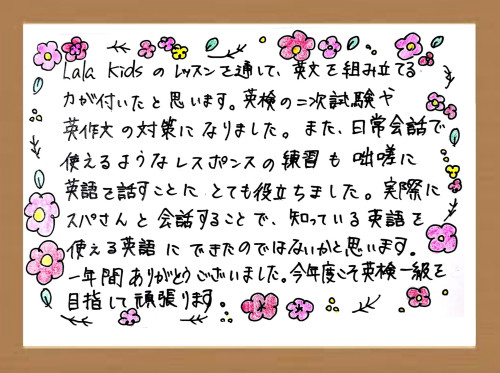 Lala Kids のレッスンを通して、英文を組み立てる
力が付いたと思います。英検の二次試験や
英作文の対策になりました。また、日常会話で
使えるようなレスポンスの練習も咄嗟に
英語を話すことにとても役立ちました。実際に
スパさんと会話することで、知っている英語を
使える英語にできたのではないかと思います。
一年間ありがとうございました。今年度こそ英検一級を
目指して頑張ります。